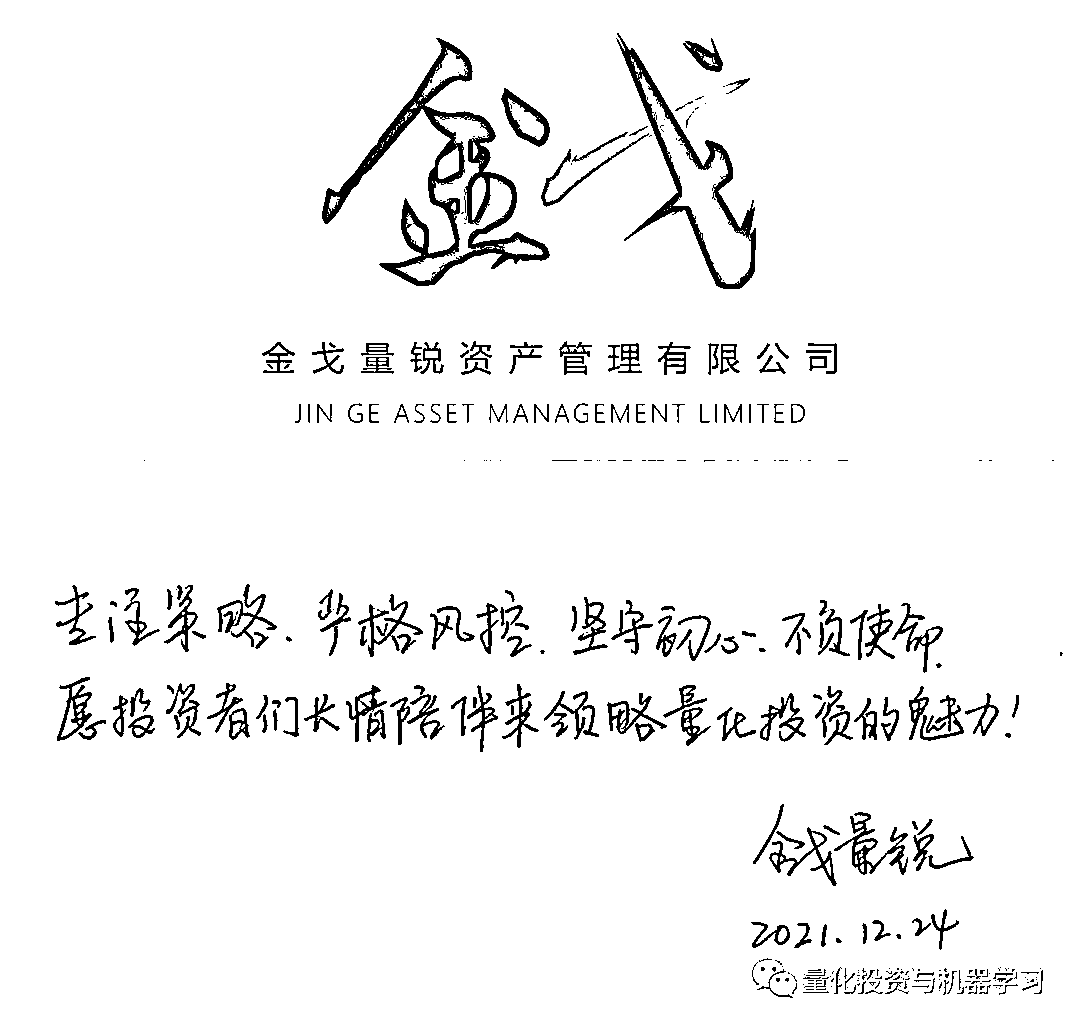 金戈
金戈量锐资产管理有限公司
JIN GE ASSET MANAGEMENT LIMITED
专注策略、严格风控、坚守初心、不负使命
愿投资者们长情陪伴来领略量化投资的魅力!
金戈量锐
2021.12.24
量化投资与机器学习